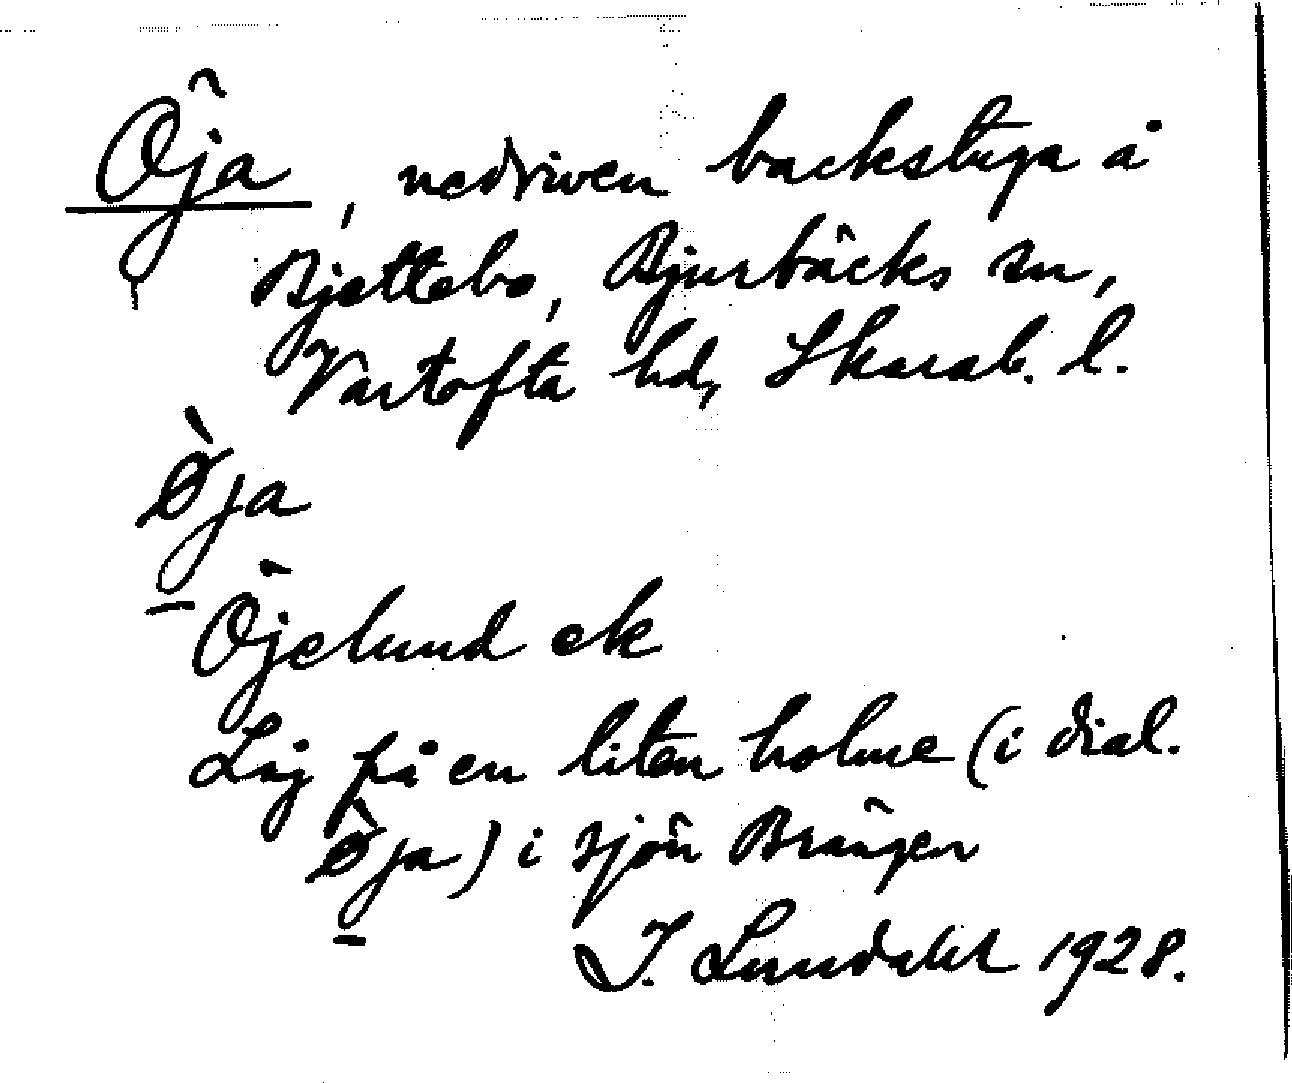 Öja, nedriven backstuga å
Bjättebo, Bjurbäcks sn,
Vartofta hd, Skarab. l.
Øja
Öjelund ek
Låg på en liten holme (i dial.
Øja) i sjön Brängen
I. Lundahl 1928.